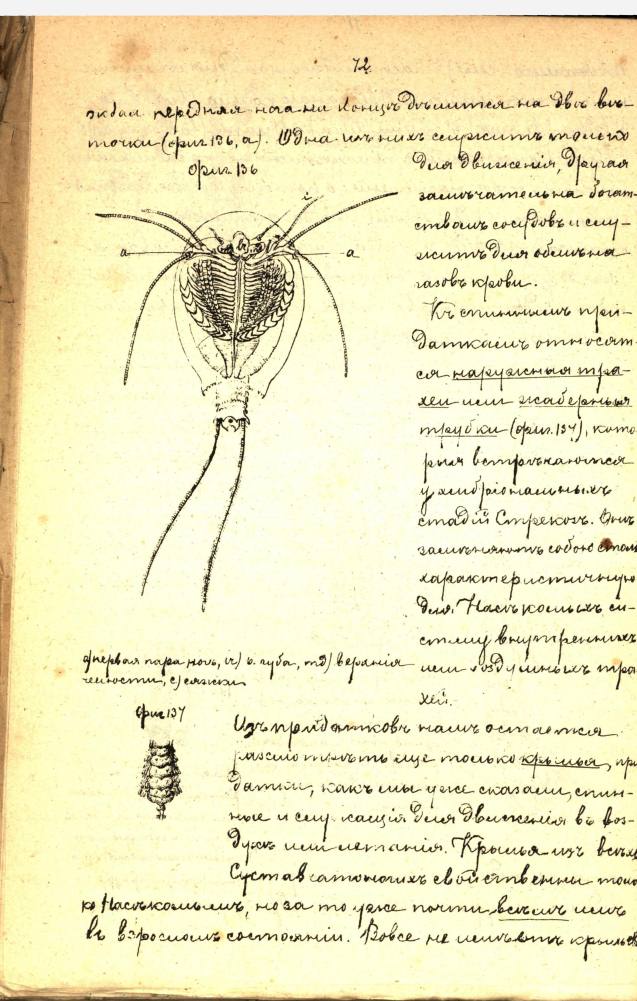 72
экдал передняя нога на концѣ дѣлится на двѣ вѣ-
точки (фиг. 136, a). Одна изъ нихъ служитъ только
фиг. 136
для движенія, другая
замѣчательна богат-
ствомъ сосудовъ и слу-
житъ для обмѣна
газовъ крови.
Къ спиннымъ при-
даткамъ относят-
ся наружныя тра-
хеи или жаберныя
трубки (фиг. 137), кото
рыя встрѣчаются
у эмбріональныхъ
стадій Стрекозъ. Онѣ
замѣняютъ собою столь
характеристичную
для Насѣкомыхъ си-
стему внутреннихъ
или воздушныхъ тра
хей.
a
i
a
первая пара ногъ, в. губа, верхнія
челюсти, с) сяжки
фиг 137
Изъ придатковъ намъ остается
разсмотрѣть еще только крылья, при
датки, какъ мы уже сказали, спин-
ные и служащія для движенія въ воз-
духѣ или летанія. Крылья изъ всѣхъ
Суставчатоногихъ свойственны толь
ко Насѣкомымъ, но за то уже почти всѣмъ имъ
въ взросломъ состояніи. Вовсе не имѣютъ крыльевъ